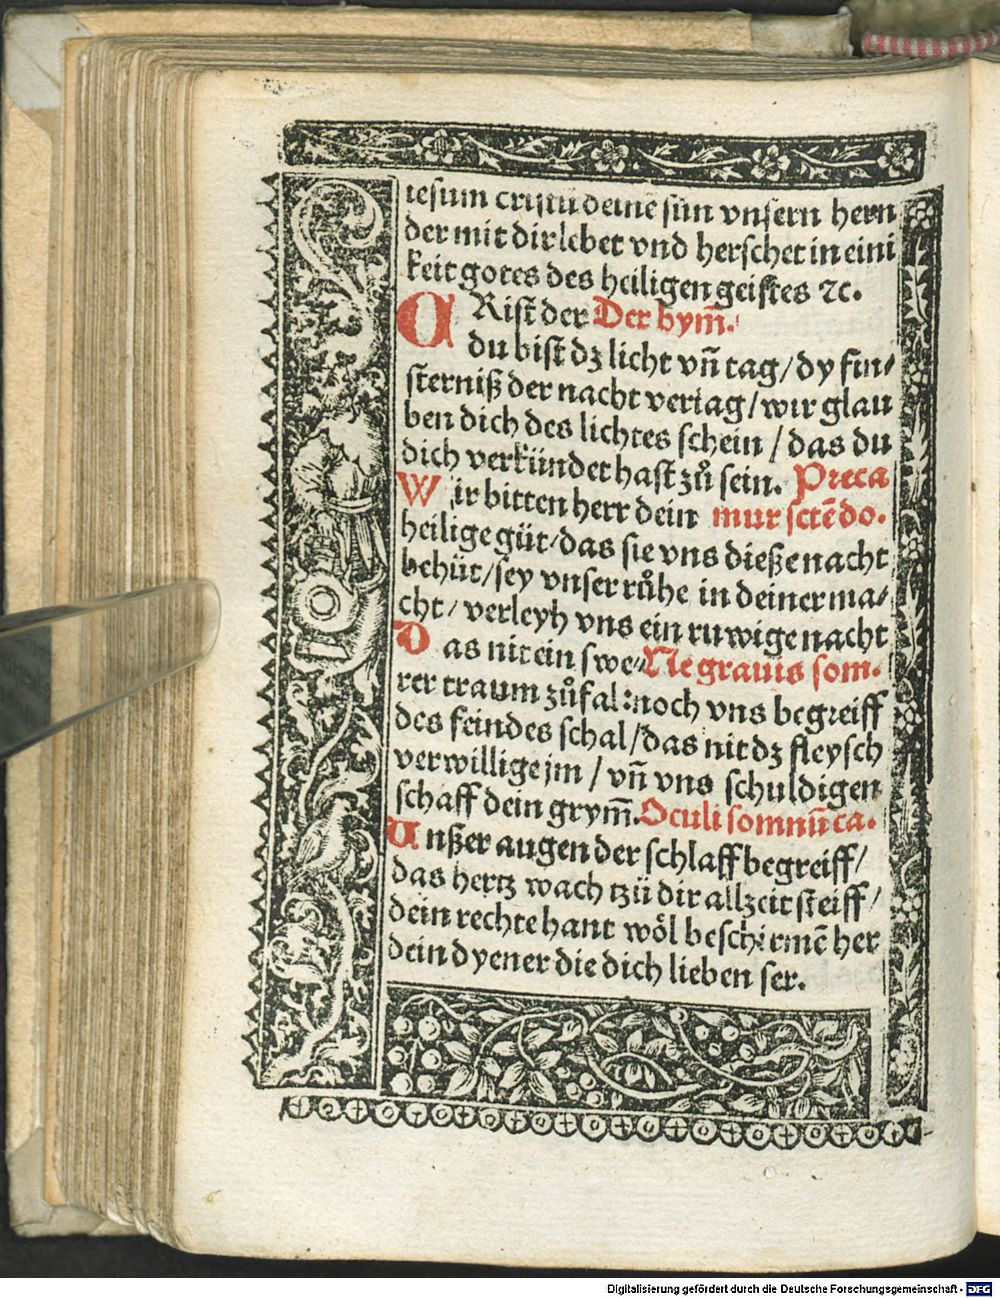 iesum cristū deinē sün vnsern hern
der mit dir lebet vnd herschet in eini
keit gotes des heiligen geistes ⁊c.
CRist der Der hym̄.
du bist dz licht vn̄ tag/ dy fin⸗
sterniß der nacht veriag/ wir glau
ben dich des lichtes schein / das du
dich verkündet hast zů sein. Preca
Wir bitten herr dein mur sctē do.
heilige güt/ das sie vns dieße nacht
behüt/ sey vnser růhe in deiner ma⸗
cht/ verleyh vns ein ruwige nacht
Das nit ein swe⸗ Ne grauis som.
rer traum zůfal: noch vns begreiff
des feindes schal/ das nit dz fleysch
verwillige jm / vn̄ vns schuldigen
schaff dein grym̄. Oculi somnū ca.
Vnßer augen der schlaff begreiff/
das hertz wach tzü dir allzeit steiff/
dein rechte hant wöl beschirmē her
dein dyener die dich lieben ser.
Digitalisierung gefördert durch die Deutsche Forschungsgemeinschaft - DFG